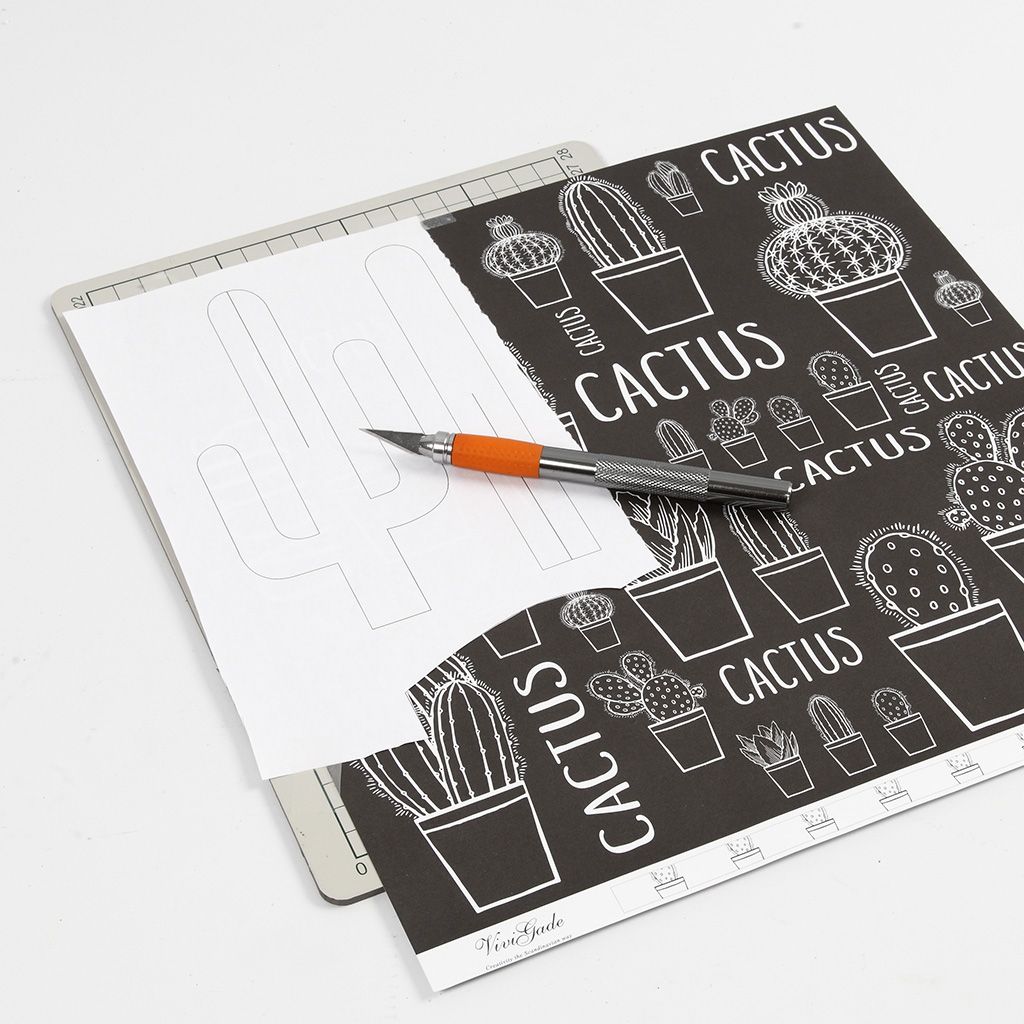 28
27
22
CACTUS
CACTUS
CACTUS
CACTUS
CACTUS
CACTUS
CACTUS
CACTUS
0
ViviGade
Creativity the Scandinavian way